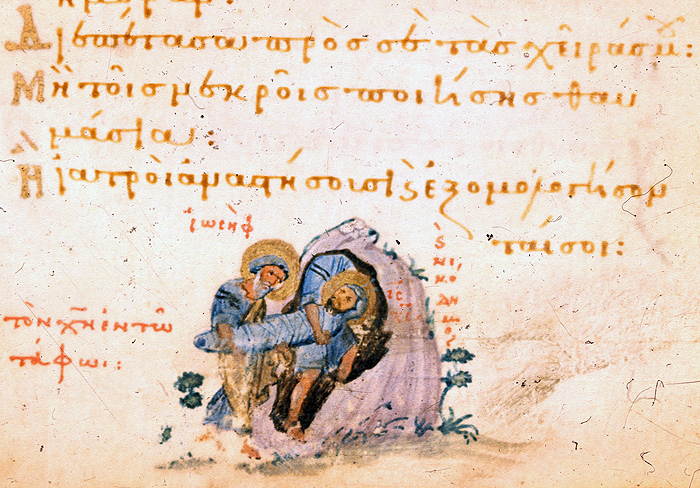 Διεπέτασα πρὸς σὲ τὰς χεῖράς μȣ:
Μὴ τοῖς νεκροῖς ποιήσης θαυ
μάσια:
Ἢ ἰατροὶ ἀναστήσουσι ϗ ἐξομολογήσον
ταί σοι:
ἰωσὴφ
ὁ νικόδημος
τὸν χ̅ν̅ ἐν τῶ
τάφωι: